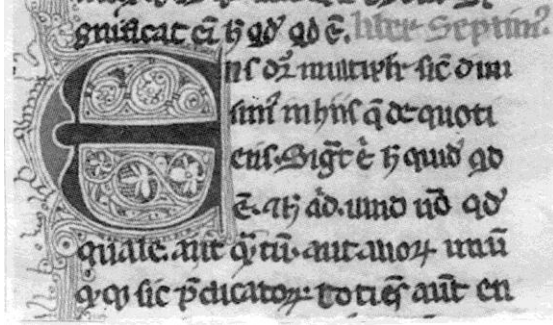 gnificat .. h̄ qđ qđ ē. liber Septimꝰ.
Ens dr̄ multiplr̄ sic̄ diui
simꝰ in hiis q̄ de quoti
ens. Sigt̄ h̄ quid qđ
ē. uō qđ
quale. aut q̄tū. aut alioꝝ unū
qͦqꝫ sic p̄dicatoꝝ. totiēs aūt en